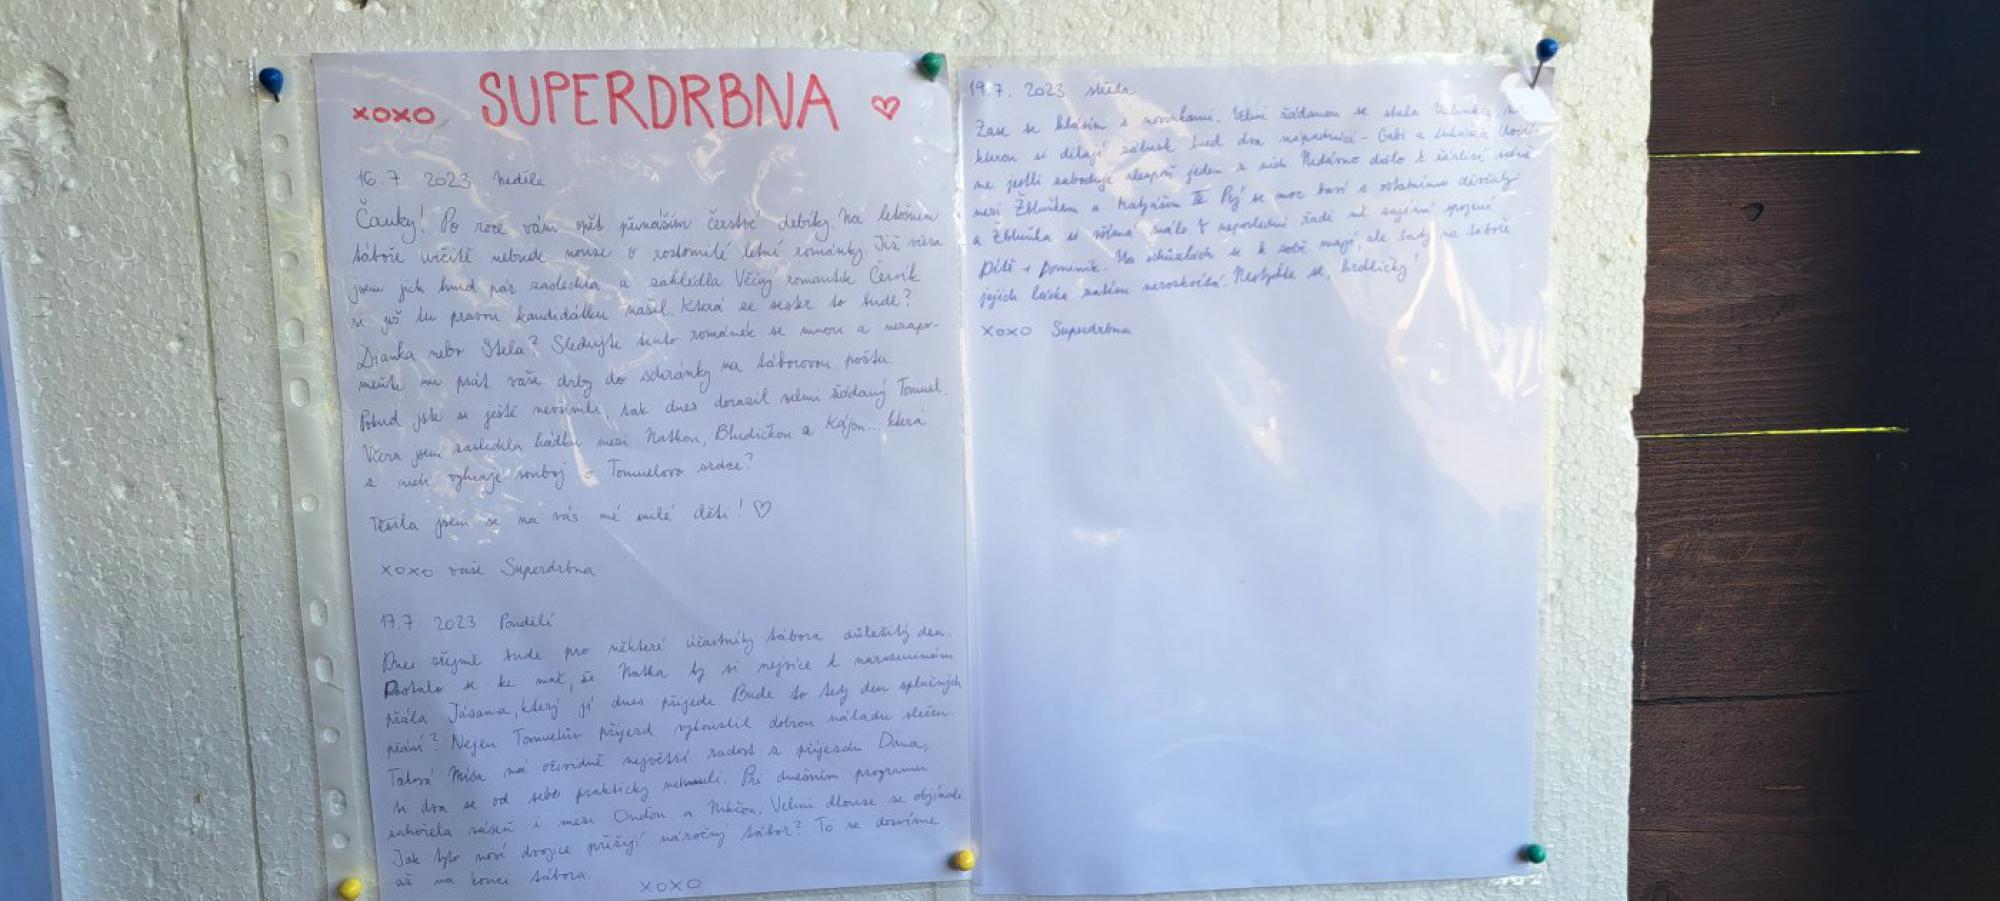 xoxo SUPERDRBNA ♡
16.7 2023 Neděle
Čauky! Po roce vám opět přináším čerstvé drbíky. Na letošním
táboře určitě nebude nouze o roztomilé letní románky. Již včera
jsem jich hned pár zaslechla a zahlédla. Věčný romantik Červík
si již tu pravou kandidátku našel. Která ze sester to bude?
Dianka nebo Stela? Sledujte tento románek se mnou a nezapo-
meňte mi psát vaše drby do schránky na táborovou poštu.
Pokud jste si ještě nevšimli, tak dnes dorazil velmi žádaný Tomuel.
Včera jsem zaslechla hádku mezi Natkou, Bludičkou a Kájou... která
z nich vyhraje souboj o Tomuelovo srdce?
Těšila jsem se na vás mé milé děti! ♡
xoxo vaše Superdrbna
17.7. 2023 Pondělí
Dnes zřejmě bude pro některé účastníky tábora důležitý den.
Dostalo se ke mně, že Natka by si nejvíce k narozeninám
přála Jásama, který jí dnes přijede. Bude to tedy den splněných
přání? Nejen Tomuelův příjezd vykouzlil dobrou náladu slečen.
Taková Míša má očividně největší radost z příjezdu Dana,
ti dva se od sebe prakticky nehnuli. Při dnešním programu
zahořela vášeň i mezi Ondou a Nikčou. Velmi dlouze se objímali.
Jak tyto nové dvojice přežijí náročný tábor? To se dozvíme
až na konci tábora.
xoxo
19.7. 2023 středa
Zase se hlásím s novinkami. Velmi žádanou se stala
kterou si dělají zálusk hned dva nápadníci - Gabi a Uvidí-
me jestli zaboduje alespoň jeden z nich. Nedávno došlo k žárlivé scéně
mezi Žbluňkem a Matyášem III. Prý se moc baví s ostatními děvčaty
a Žbluňka si všímá málo. V neposlední řadě mě zajímá spojení
Dítě + Dominik. Na schůzkách se k sobě mají, ale tady na táboře
jejich láska zatím nerozkvétá. Nestyďte se, hrdličky!
xoxo Superdrbna